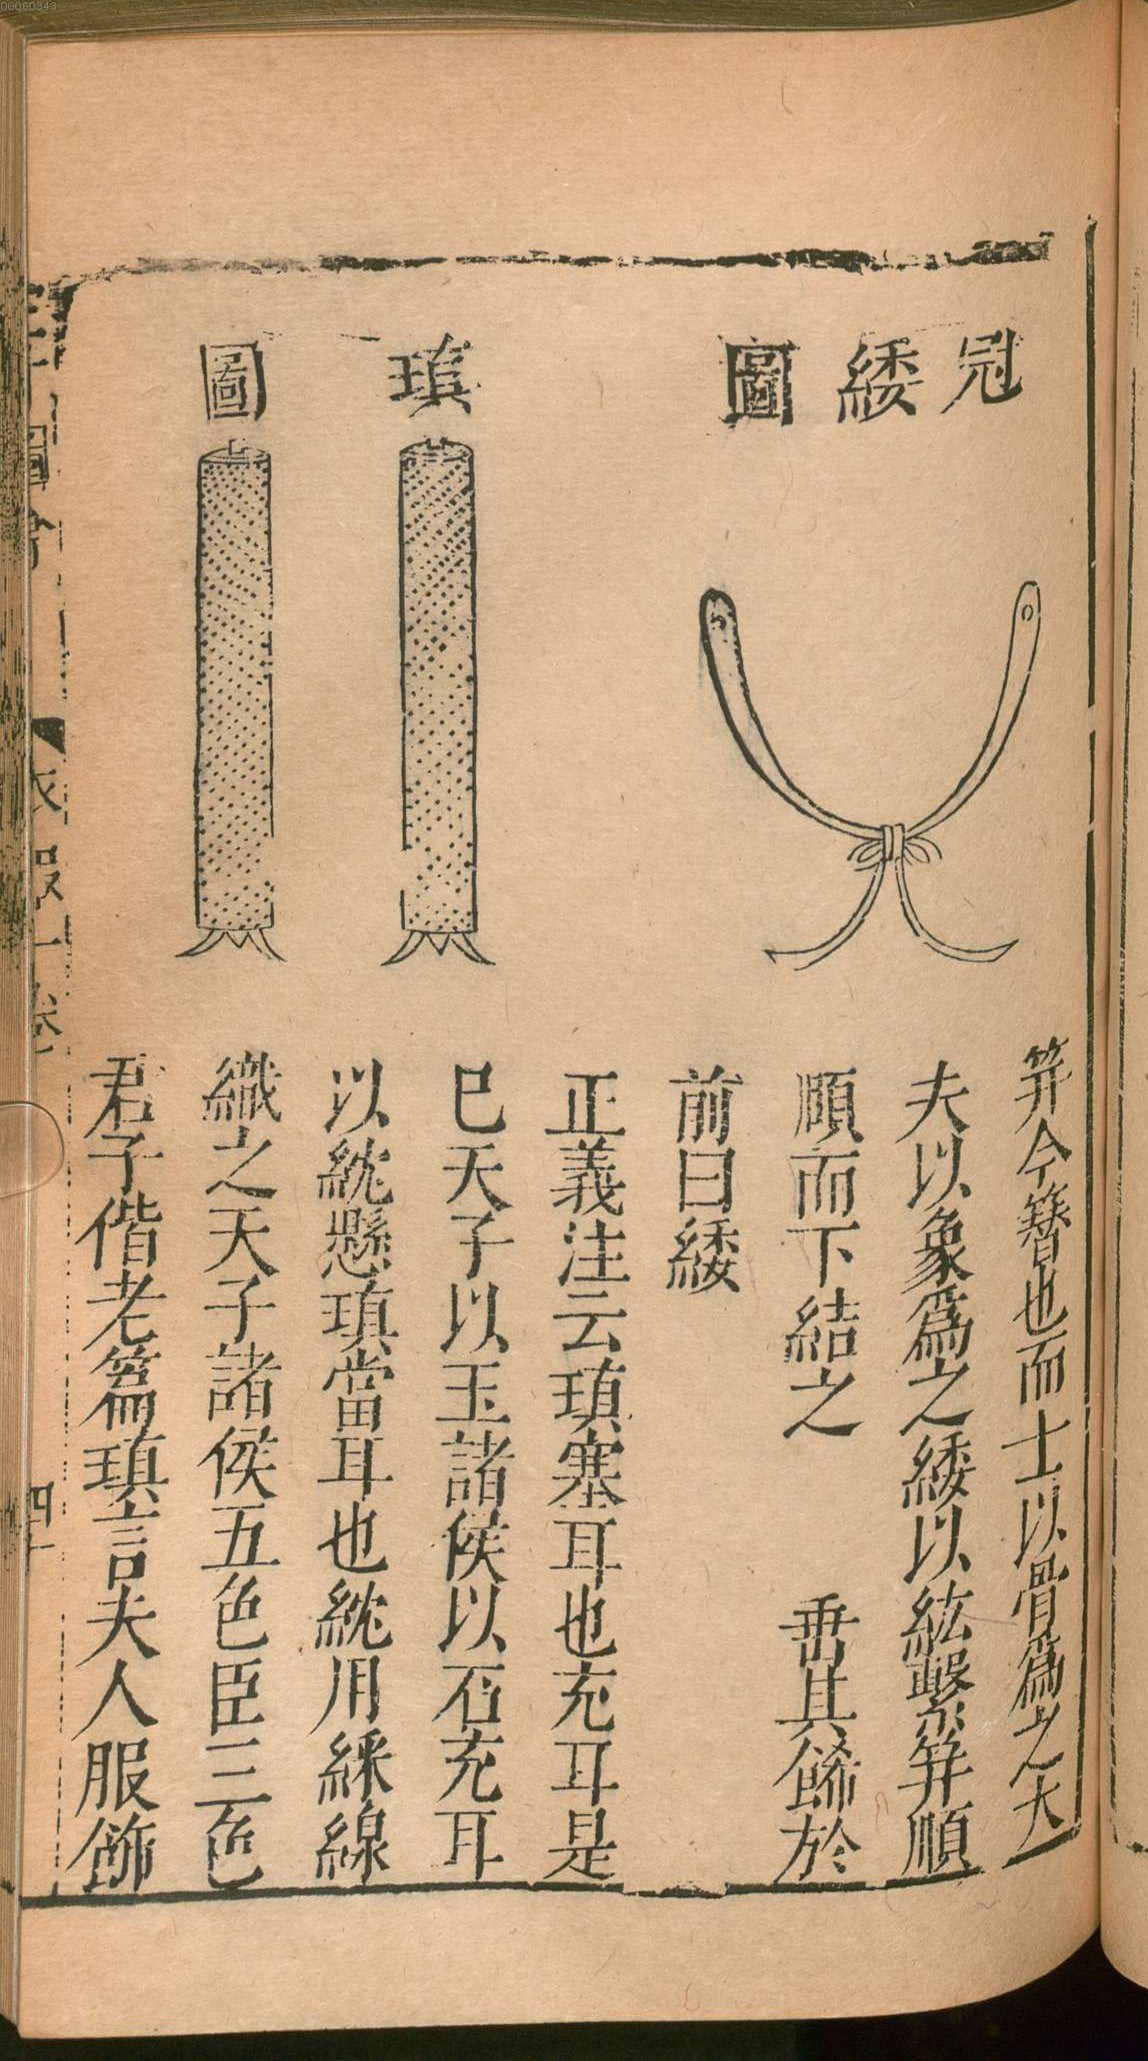 00060343
冠緌圖
笄今簪也而士以骨爲之大
夫以象爲之緌以紘繫笄順
頤而下結之　垂其餙於
前曰緌
瑱圖
正義注云瑱塞耳也充耳是
巳天子以玉諸侯以石充耳
以紞懸瑱當耳也紞用綵線
織之天子諸侯五色臣三色
君子偕老篇瑱言夫人服飾
圖會
衣服一卷
四十